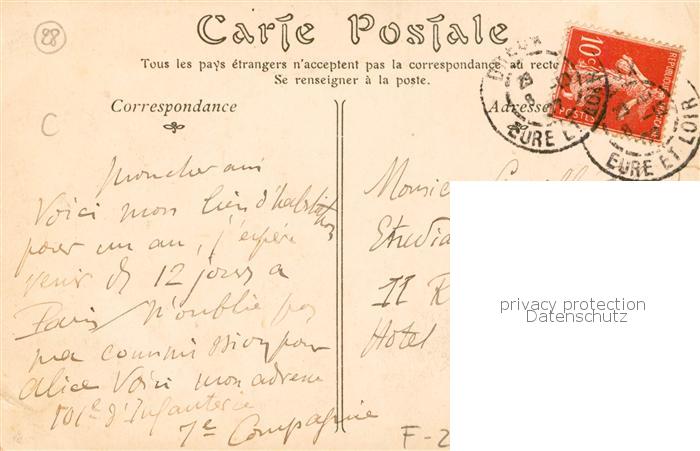 28
Carte Postale
Tous les pays étrangers n'acceptent pas la correspondance au recto
Se renseigner à la poste.
C
Correspondance
Adresse
10c
POSTES
DREUX
EURE ET LOIR
EURE ET LOIR
Mon cher ami
Voici mon lieu d'habitation
pour un an, j'espère
venir ds 12 jours a
Paris N'oublie pas
ma commission pour
Alice Voici mon adresse
101e d'Infanterie
7e Compagnie
Monsie
Etudia
11 R
Hotel
F-2
privacy protection
Datenschutz